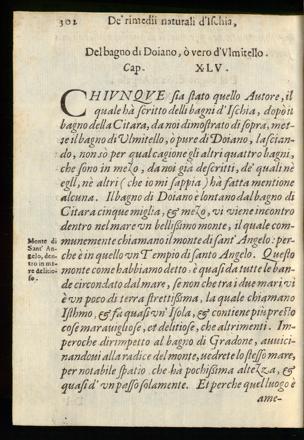 302 De' rimedii naturali d'Ischia,
Del bagno di Doiano, ò vero d'Vlmitello.
Cap. XLV.
CHIVNQVE sia stato quello Autore, il
quale hà scritto delli bagni d'Ischia, dopò il
bagno della Citara, da noi dimostrato di sopra, met-
te il bagno di Vlmitello, ò pure di Doiano, lascian-
do, non sò per qual cagione gli altri quattro bagni,
che sono in mezo, da noi già descritti, de' quali nè
egli, nè altri (che io mi sappia) hà fatta mentione
alcuna. Il bagno di Doiano è lontano dal bagno di
Citara cinque miglia, & mezo, vi viene incontro
dentro nel mare vn bellissimo monte, il quale com-
munemente chiamano il monte di sant'Angelo: per-
che è in quello vn Tempio di santo Angelo. Questo
monte come habbiamo detto, è quasi da tutte le ban-
de circondato dal mare, se non che tra i due mari vi
è vn poco di terra strettissima, la quale chiamano
Isthmo, & fà quasi vn' Isola, & contiene più presto
cose marauigliose, et delitiose, che altrimenti. Im-
peroche dirimpetto al bagno di Gradone, auuici-
nandoui alla radice del monte, vedrete lo stesso mare,
per notabile spatio, che hà pochissima altezza, &
quasi d' vn passo solamente. Et perche quel luogo è
ame-
Monte di
Sant' An-
gelo, den-
tro in ma-
re delitio-
so.